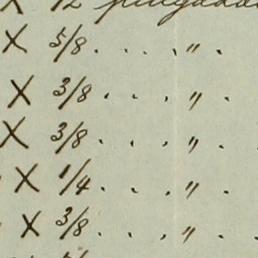 X 1/2
X 5/8 . . . . " .
X 3/8 . . . . " .
X 3/8 . . . " .
X 1/4 . . . " .
X 3/8 . . . " .